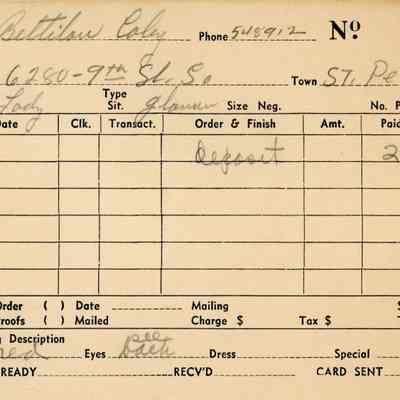 Bettilou Coley Phone 548912 Nº
6280-9th St. So Town ST. Pe
Lady Type Sit. glamour Size Neg. No. P
Date Clk. Transact. Order & Finish Amt. Paid
Deposit 2
Order ( ) Date Mailing S
Proofs ( ) Mailed Charge $ Tax $ T
g Description
red Eyes see Dress Special
READY RECV'D CARD SENT